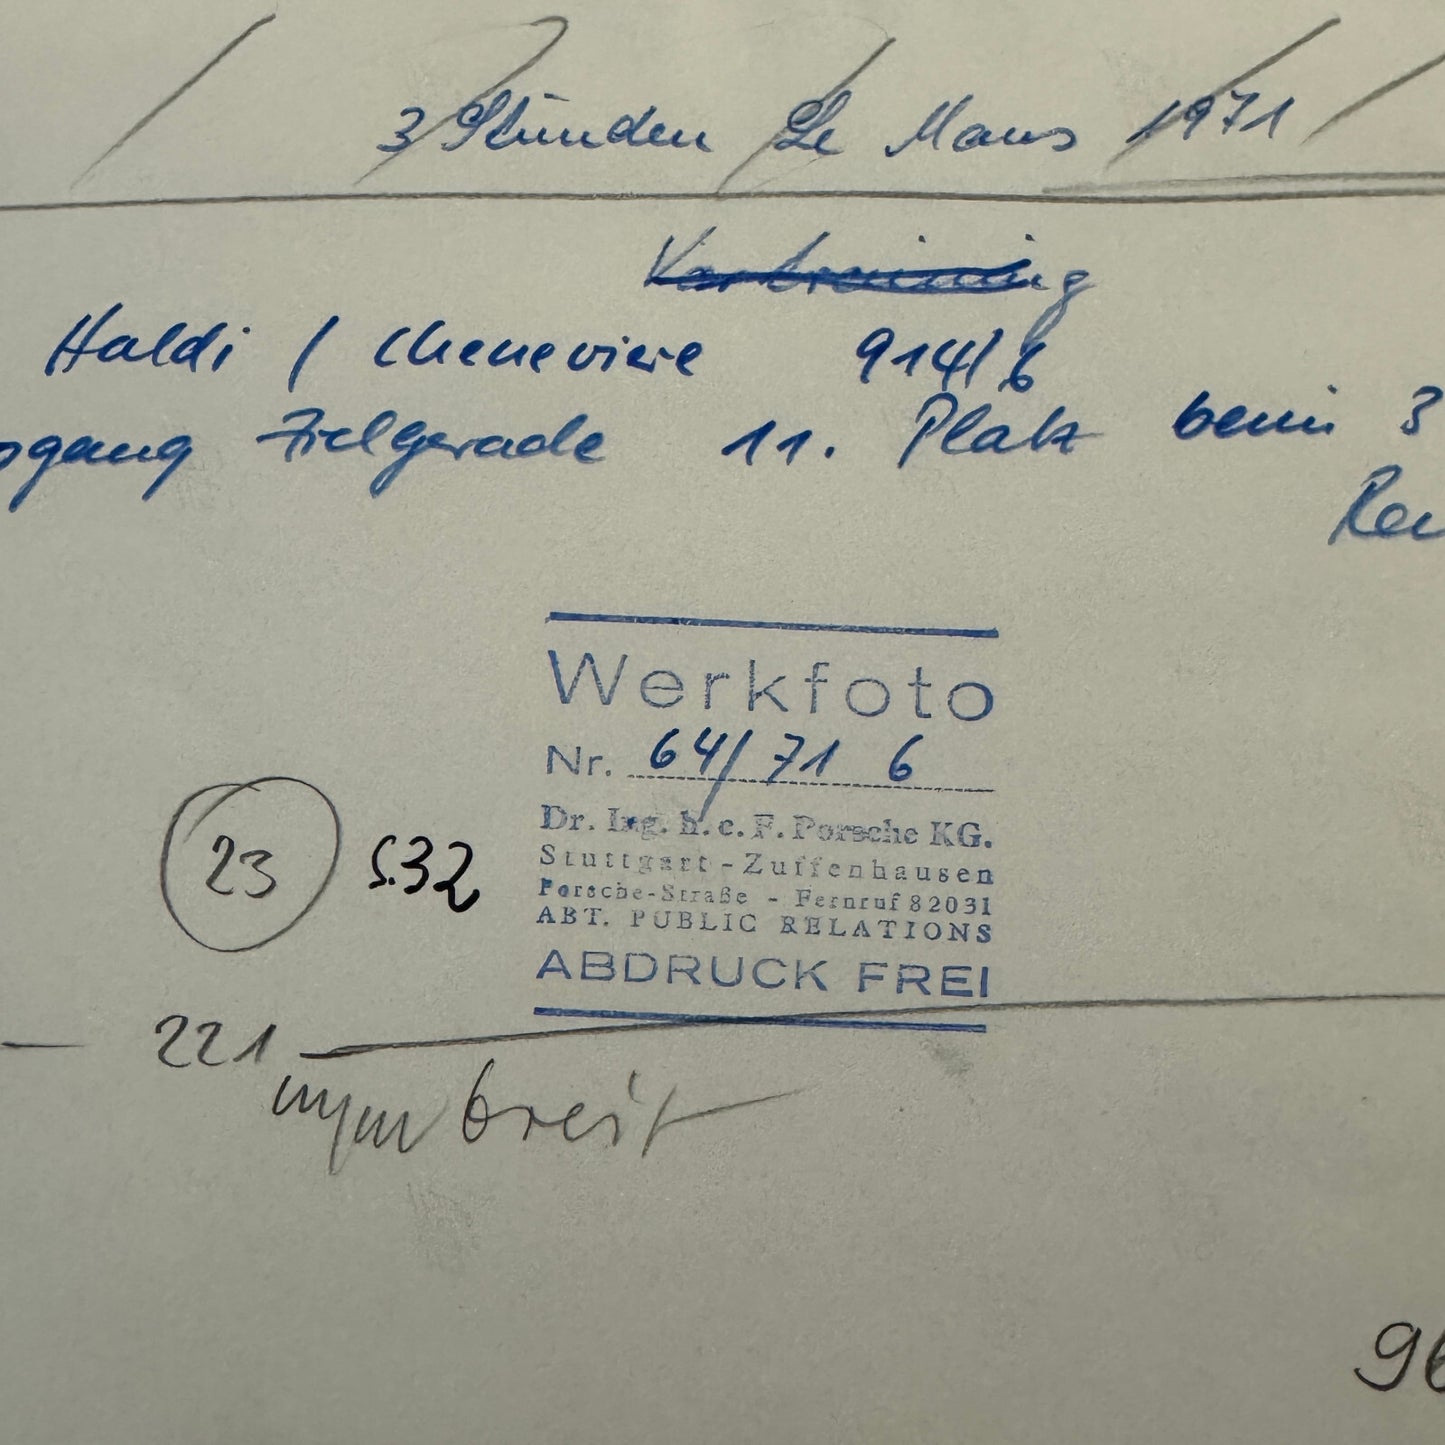 3 Stunden Le Mans 1971
Vortraining
Haldi / Cheneviere 914/6
gang Zielgerade 11. Platz beim 3
Ren
Werkfoto
Nr. 64/71 6
Dr. Ing. h. c. F. Porsche KG.
Stuttgart-Zuffenhausen
Porsche-Straße - Fernruf 82031
ABT. PUBLIC RELATIONS
ABDRUCK FREI
23 S.32
— 221 —
breit
96